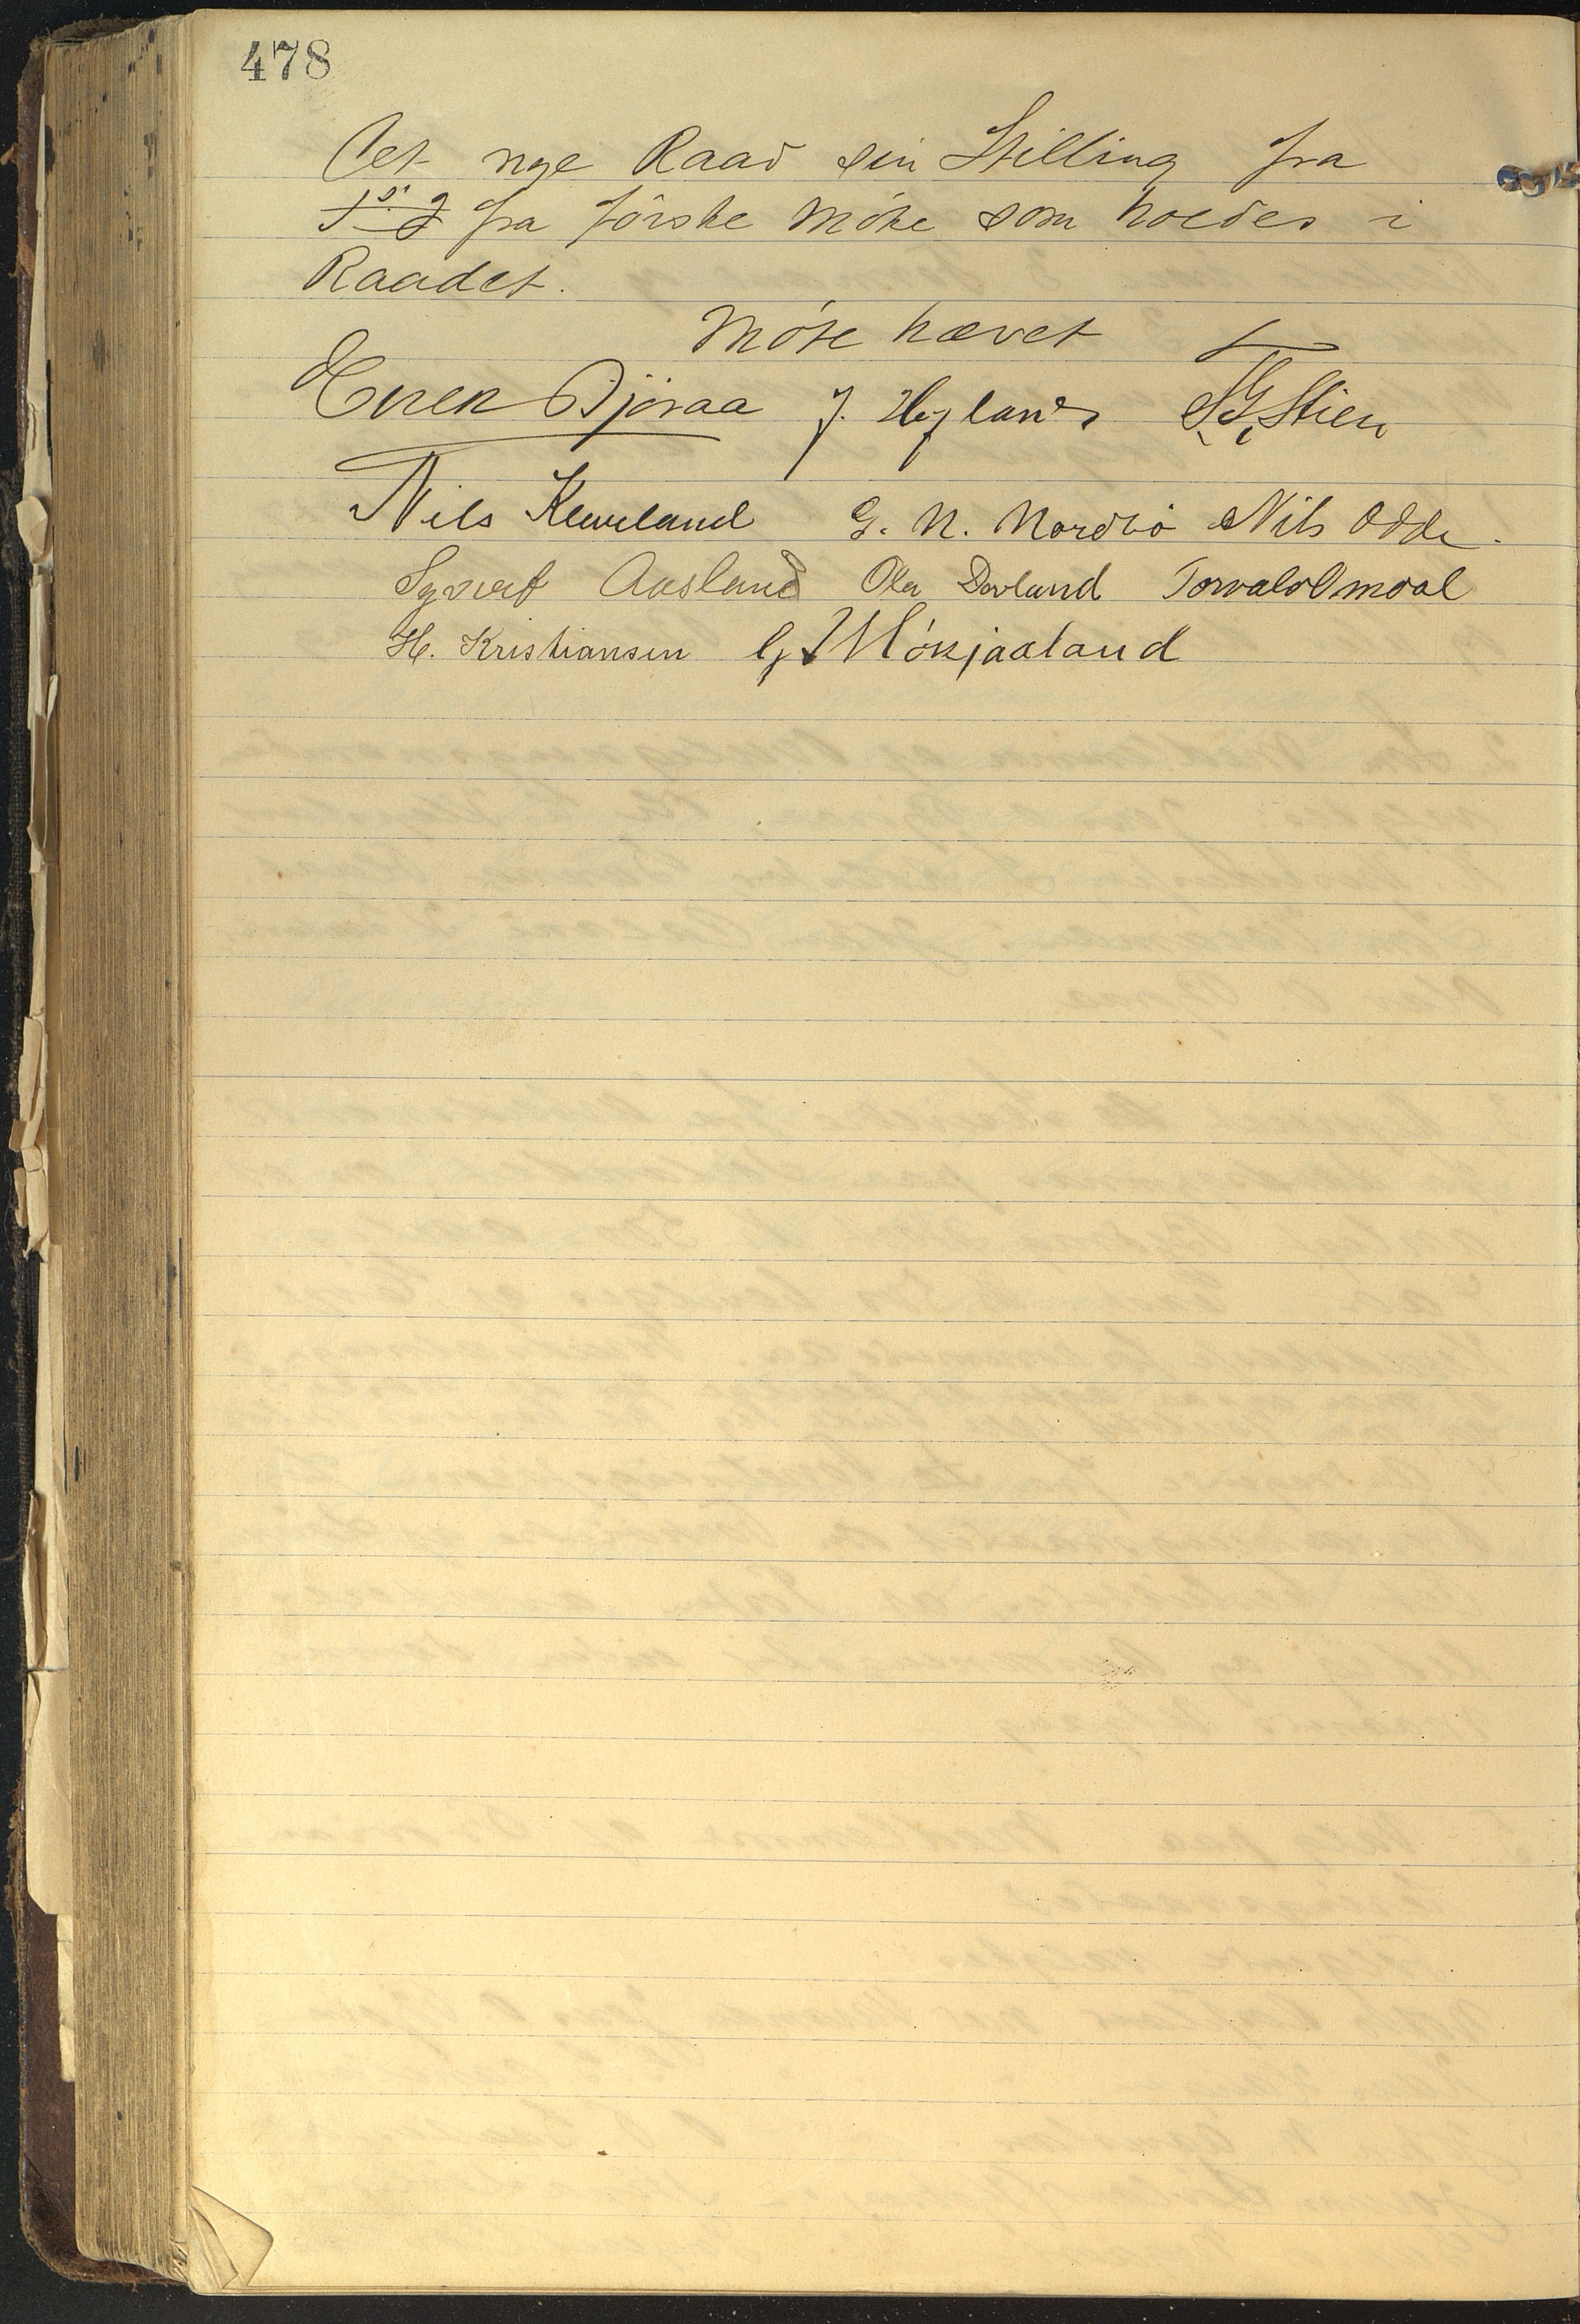 478
Det nye Raad sin Stilling fra
fra förste Möte som holdes i
Raadet.
Möte hævet
Enek Bjoraa J. Hegland S. G. Stien
Nils Kleveland G. N. Nordbö Nils Odde.
Syvert Aasland Ola Dovland Torvald Omdal
H. Kristiansen G Mönjaaland